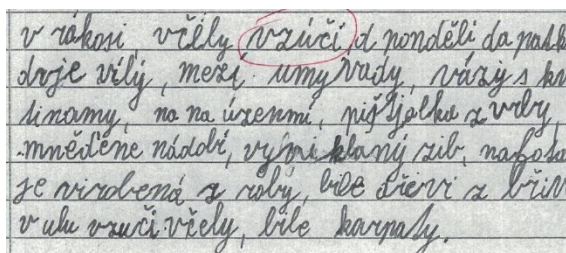 v rákosi, včěly vzúčí, d ponděli da patk
dvje vílý, mezi umyvady, vázý s kv
tinamy, na na územmí, pišťjalka z vrby
mněděne nádobí, zib,
je virobená z roby, bile dřevi z břiv
v ulu vzuči včely, bíle karpaty.